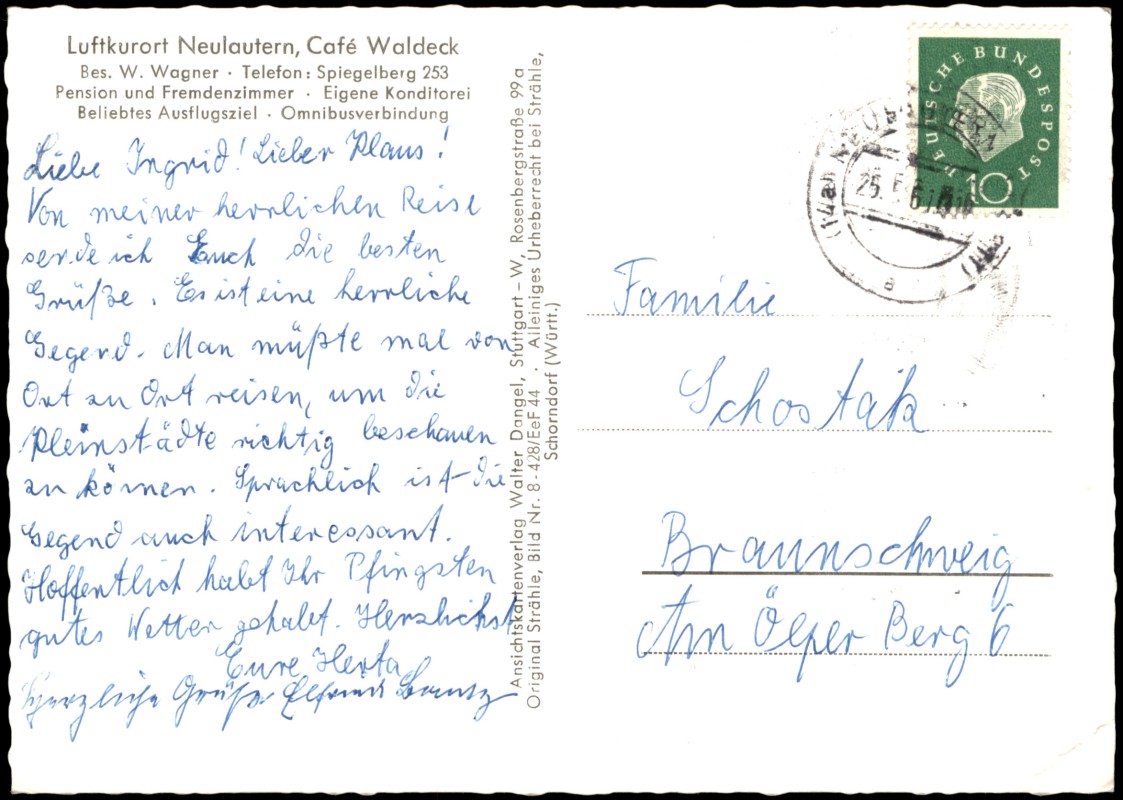 Luftkurort Neulautern, Café Waldeck
Bes. W. Wagner · Telefon: Spiegelberg 253
Pension und Fremdenzimmer · Eigene Konditorei
Beliebtes Ausflugsziel · Omnibusverbindung
Liebe Ingrid! Lieber Klaus!
Von meiner herrlichen Reise
sende ich Euch die besten
Grüße. Es ist eine herrliche
Gegend. Man müßte mal von
Ort zu Ort reisen, um die
Kleinstädte richtig beschauen
zu können. Sprachlich ist die
Gegend auch interessant.
Hoffentlich habt Ihr Pfingsten
gutes Wetter gehabt. Herzlichst
Eure Herta
Herzliche Grüße
Ansichtskartenverlag Walter Dangel, Stuttgart-W, Rosenbergstraße 99a
Original Strähle, Bild Nr. 8-428/EeF 44 · Alleiniges Urheberrecht bei Strähle,
Schorndorf (Württ.)
DEUTSCHE BUNDESPOST
10
a
Familie
Schostak
Braunschweig
Am Ölper Berg 6